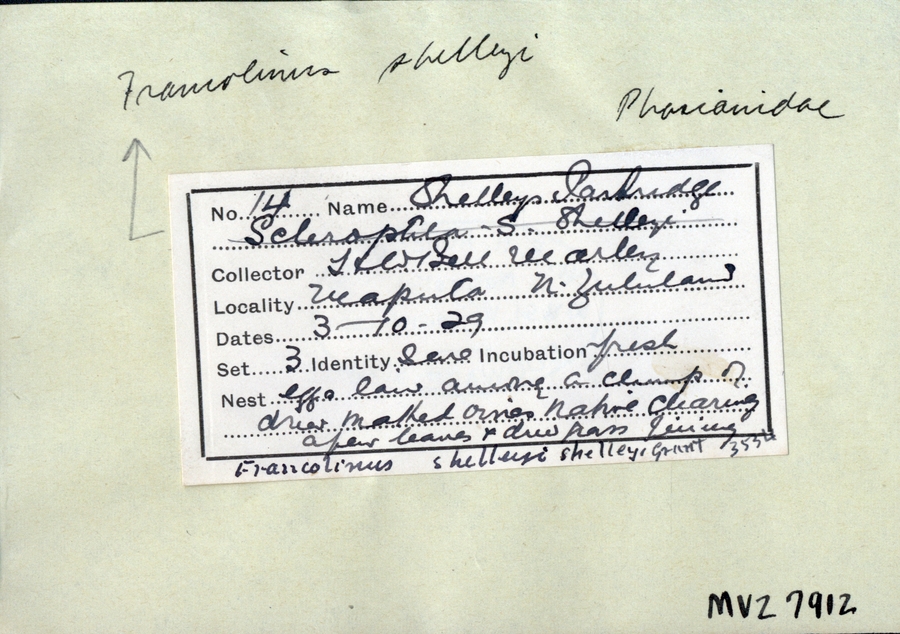 Francolinus shelleyi
Phasianidae
No. 14 Name Shelleys Partridge
Scleroptila S. Shelleyi
Collector H W Bell Marley
Locality Maputa N. Zululand
Dates 3-10-29
Set 3 Identity Sure Incubation fresh
Nest eggs laid among a clump of
dried matted native clearing
a few leaves & dried grass lining
Francolinus shelleyi shelleyi Grant
MVZ 7912